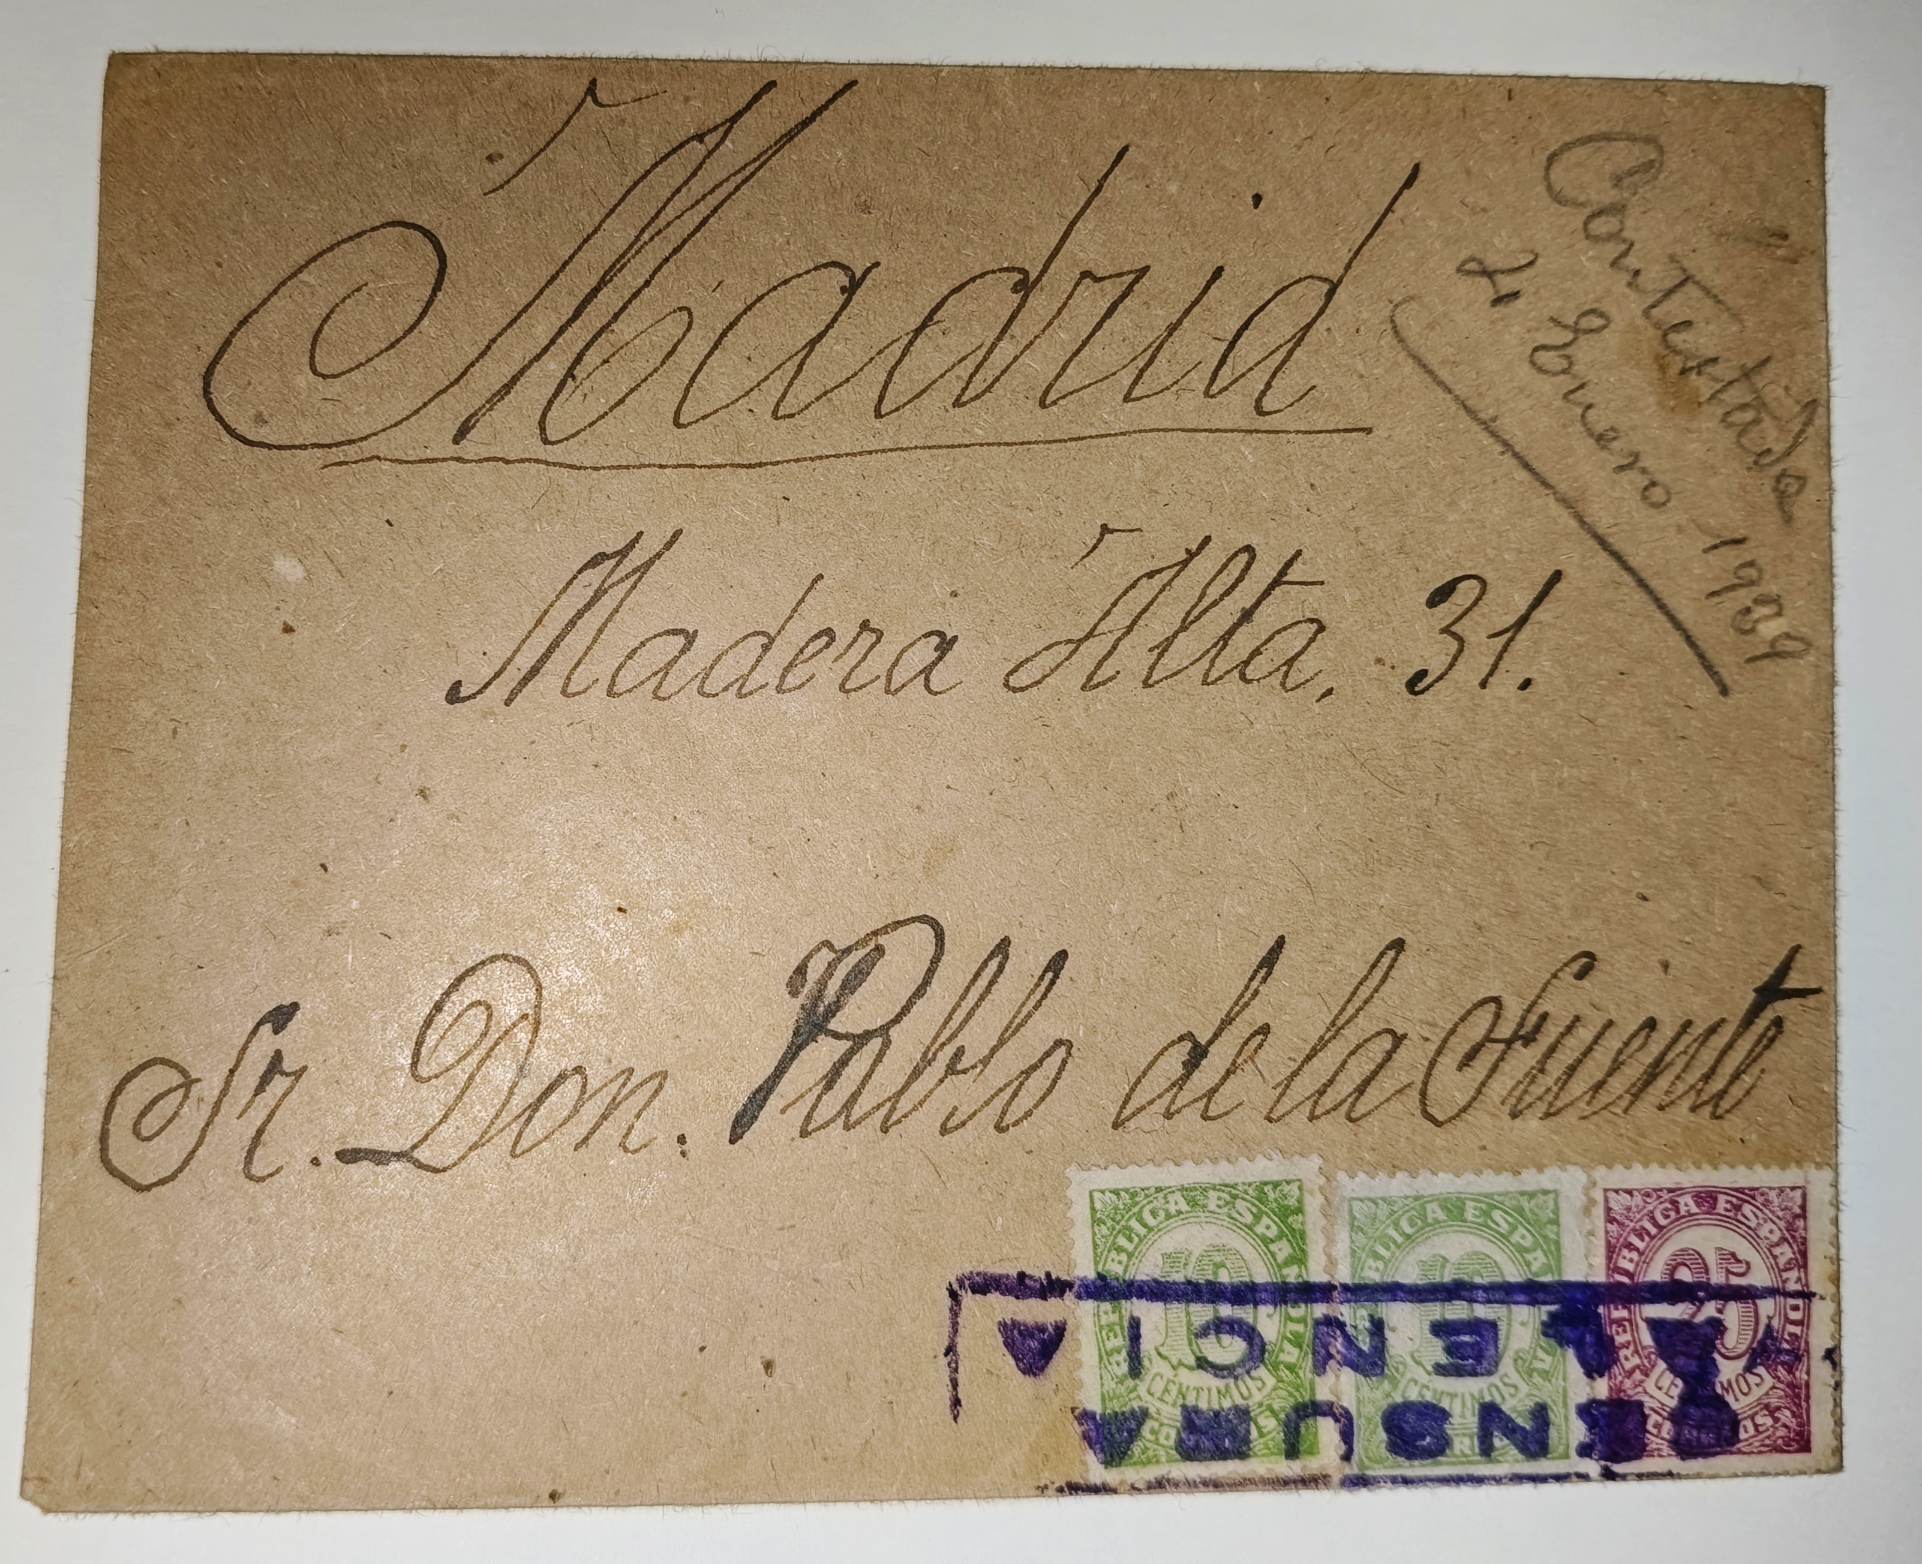 Madrid
Contestada
4 Enero 1939
Madera Alta, 31.
Sr. Don. Pablo de la Fuente
REPUBLICA ESPAÑOLA
10
CÉNTIMOS
CORREOS
REPUBLICA ESPAÑOLA
10
CÉNTIMOS
CORREOS
REPUBLICA ESPAÑOLA
25
CÉNTIMOS
CORREOS
CENSURA
VALENCIA